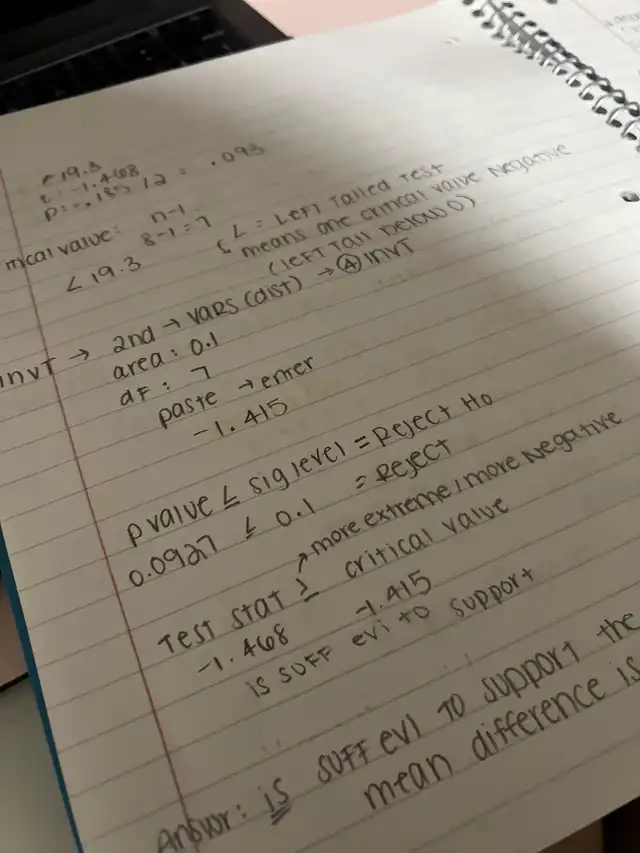 < 19.3
t: -1.468
p: .185 / 2 = .093
critical value: n-1
8-1=7
< 19.3
( L = Left Tailed Test
means one critical value Negative
(left tail below 0)
INVT → 2nd → VARS (dist) → ④ INVT
area: 0.1
dF: 7
paste → enter
-1.415
p value ≤ sig level = Reject Ho
0.0927 ≤ 0.1 = Reject
↗ more extreme, more Negative
Test stat ≥ critical value
-1.468 -1.415
is suff evi to support
Answer: is suff evi to support the
mean difference is